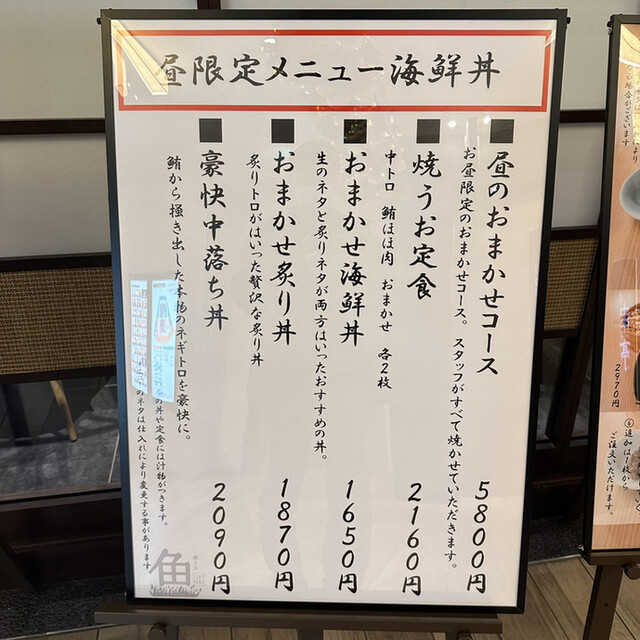 昼限定メニュー海鮮丼
昼のおまかせコース 5800円
お昼限定のおまかせコース。スタッフがすべて焼かせていただきます。
焼うお定食 2160円
中トロ 鮪ほほ肉 おまかせ 各2枚
おまかせ海鮮丼 1650円
生のネタと炙りネタが両方はいったおすすめの丼。
おまかせ炙り丼 1870円
炙りトロがはいった贅沢な炙り丼
豪快中落ち丼 2090円
鮪から掻き出した本物のネギトロを豪快に。
の丼や定食には汁物がつきます。
のネタは仕入れにより変更する事があります。
魚
2970円
④追加は一枚から
ご注文いただけます。